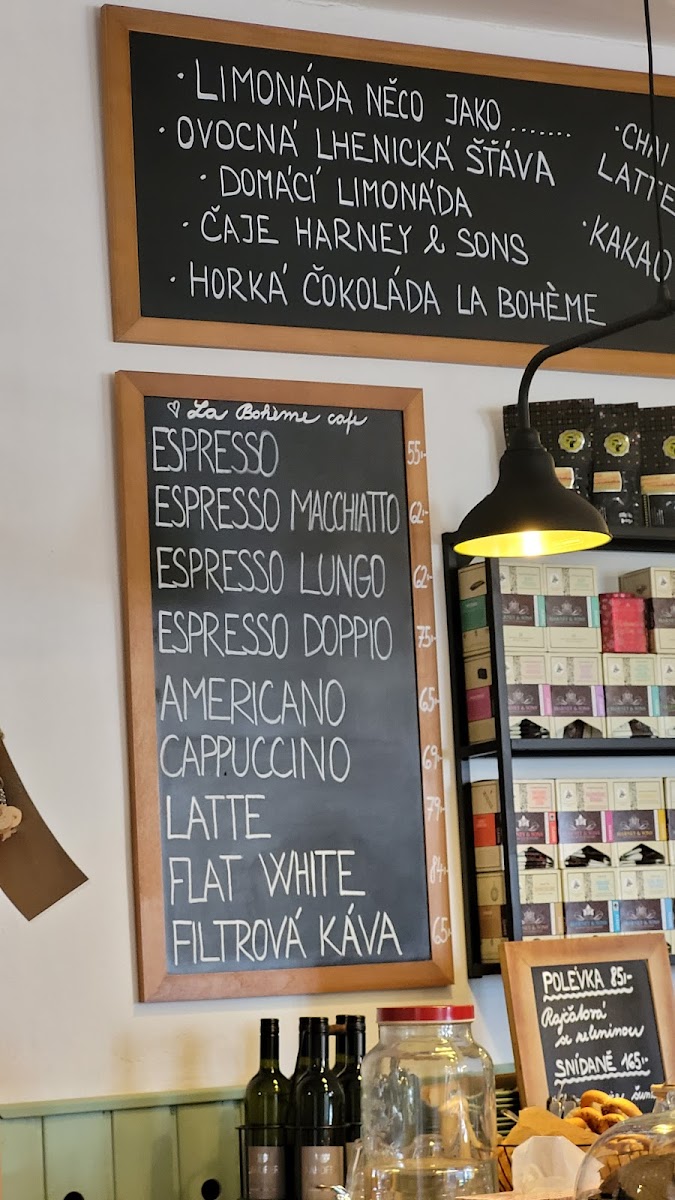 · LIMONÁDA NĚCO JAKO .......
· OVOCNÁ LHENICKÁ ŠŤÁVA
· DOMÁCÍ LIMONÁDA
· ČAJE HARNEY & SONS
· HORKÁ ČOKOLÁDA LA BOHÈME
· CHAI
LATTE
· KAKAO
♡ La Bohème cafe
ESPRESSO 55,-
ESPRESSO MACCHIATTO 62,-
ESPRESSO LUNGO 62,-
ESPRESSO DOPPIO 75,-
AMERICANO 65,-
CAPPUCCINO 69,-
LATTE 79,-
FLAT WHITE 84,-
FILTROVÁ KÁVA 65,-
POLÉVKA 85,-
Rajčatová
se zeleninou
SNÍDANĚ 165,-